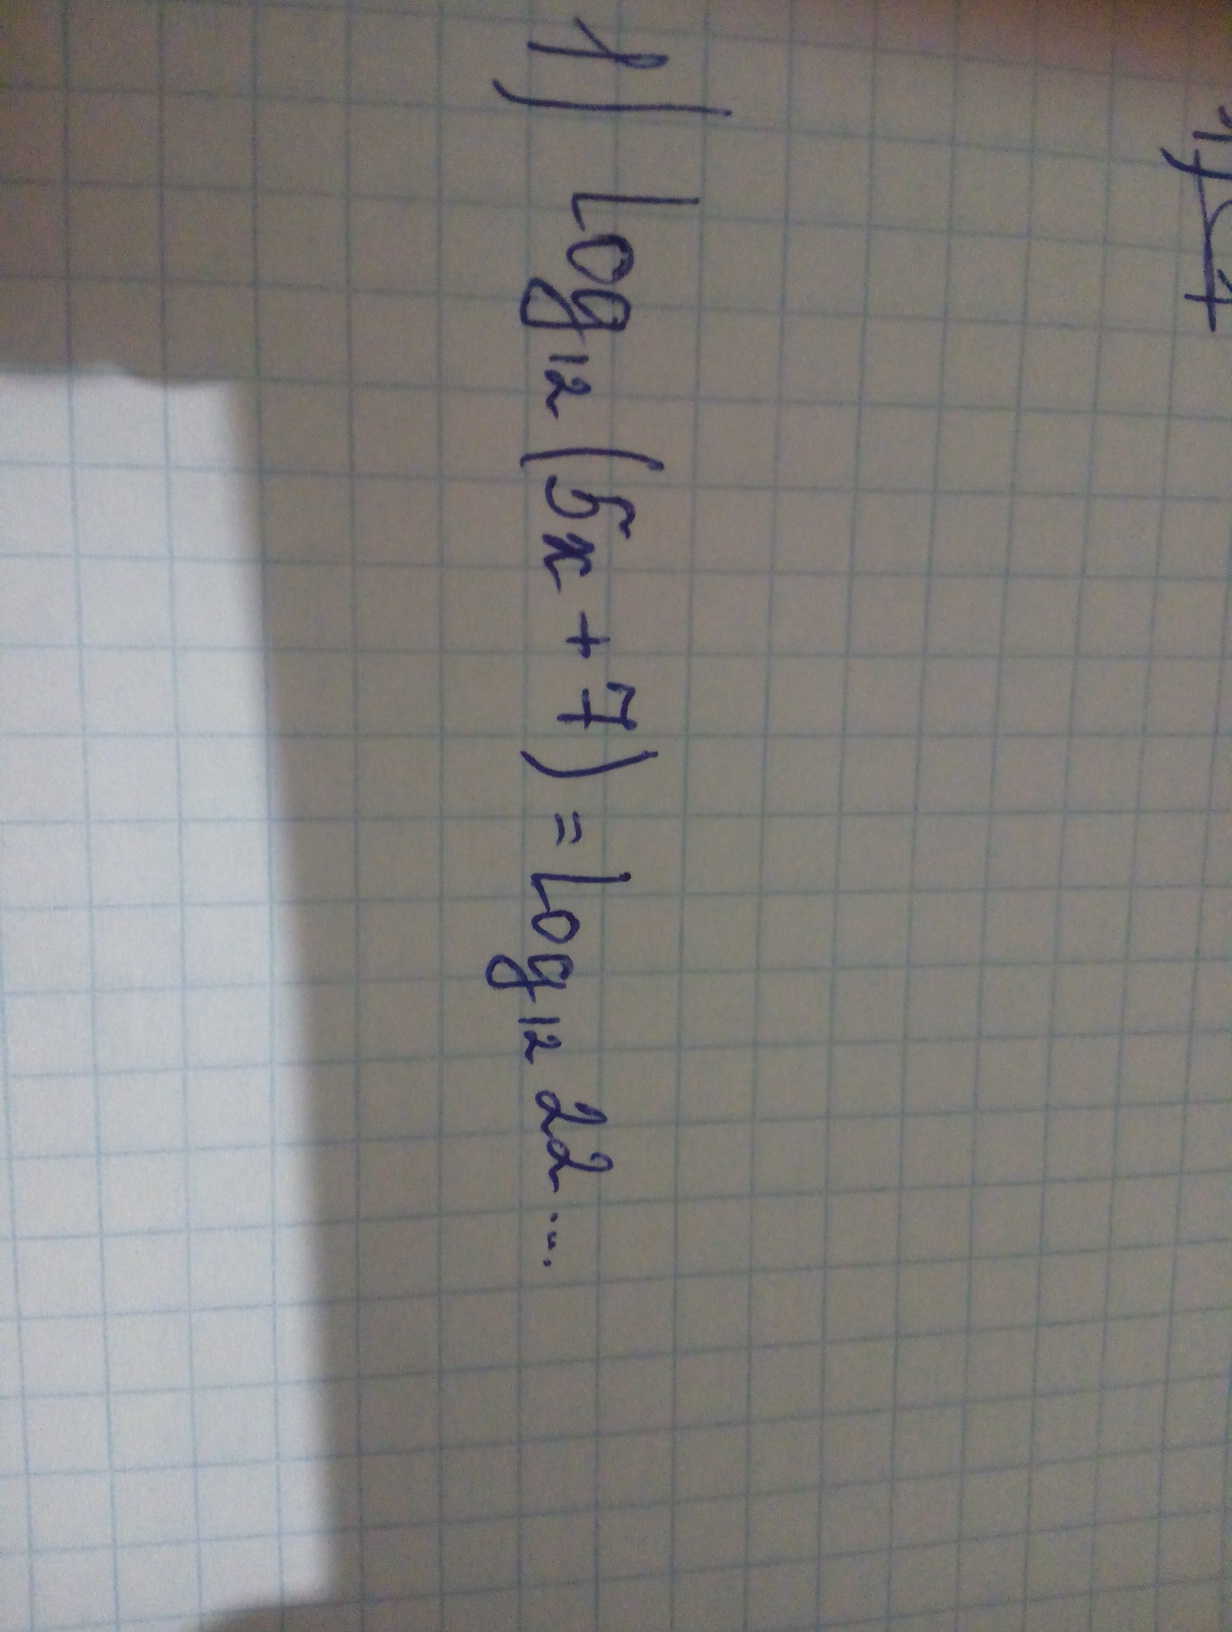 1) log₁₂(5x + 7) = log₁₂ 22 ...